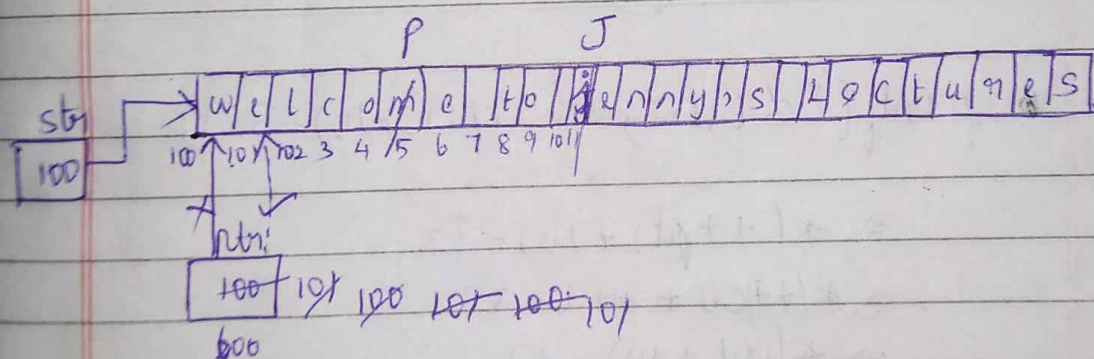 P J
w e l c o m e t o j e n n y ' s L e c t u r e s
str
100 101 102 3 4 5 6 7 8 9 10 11
100
ptr:
100 101 100 101 100 101
600